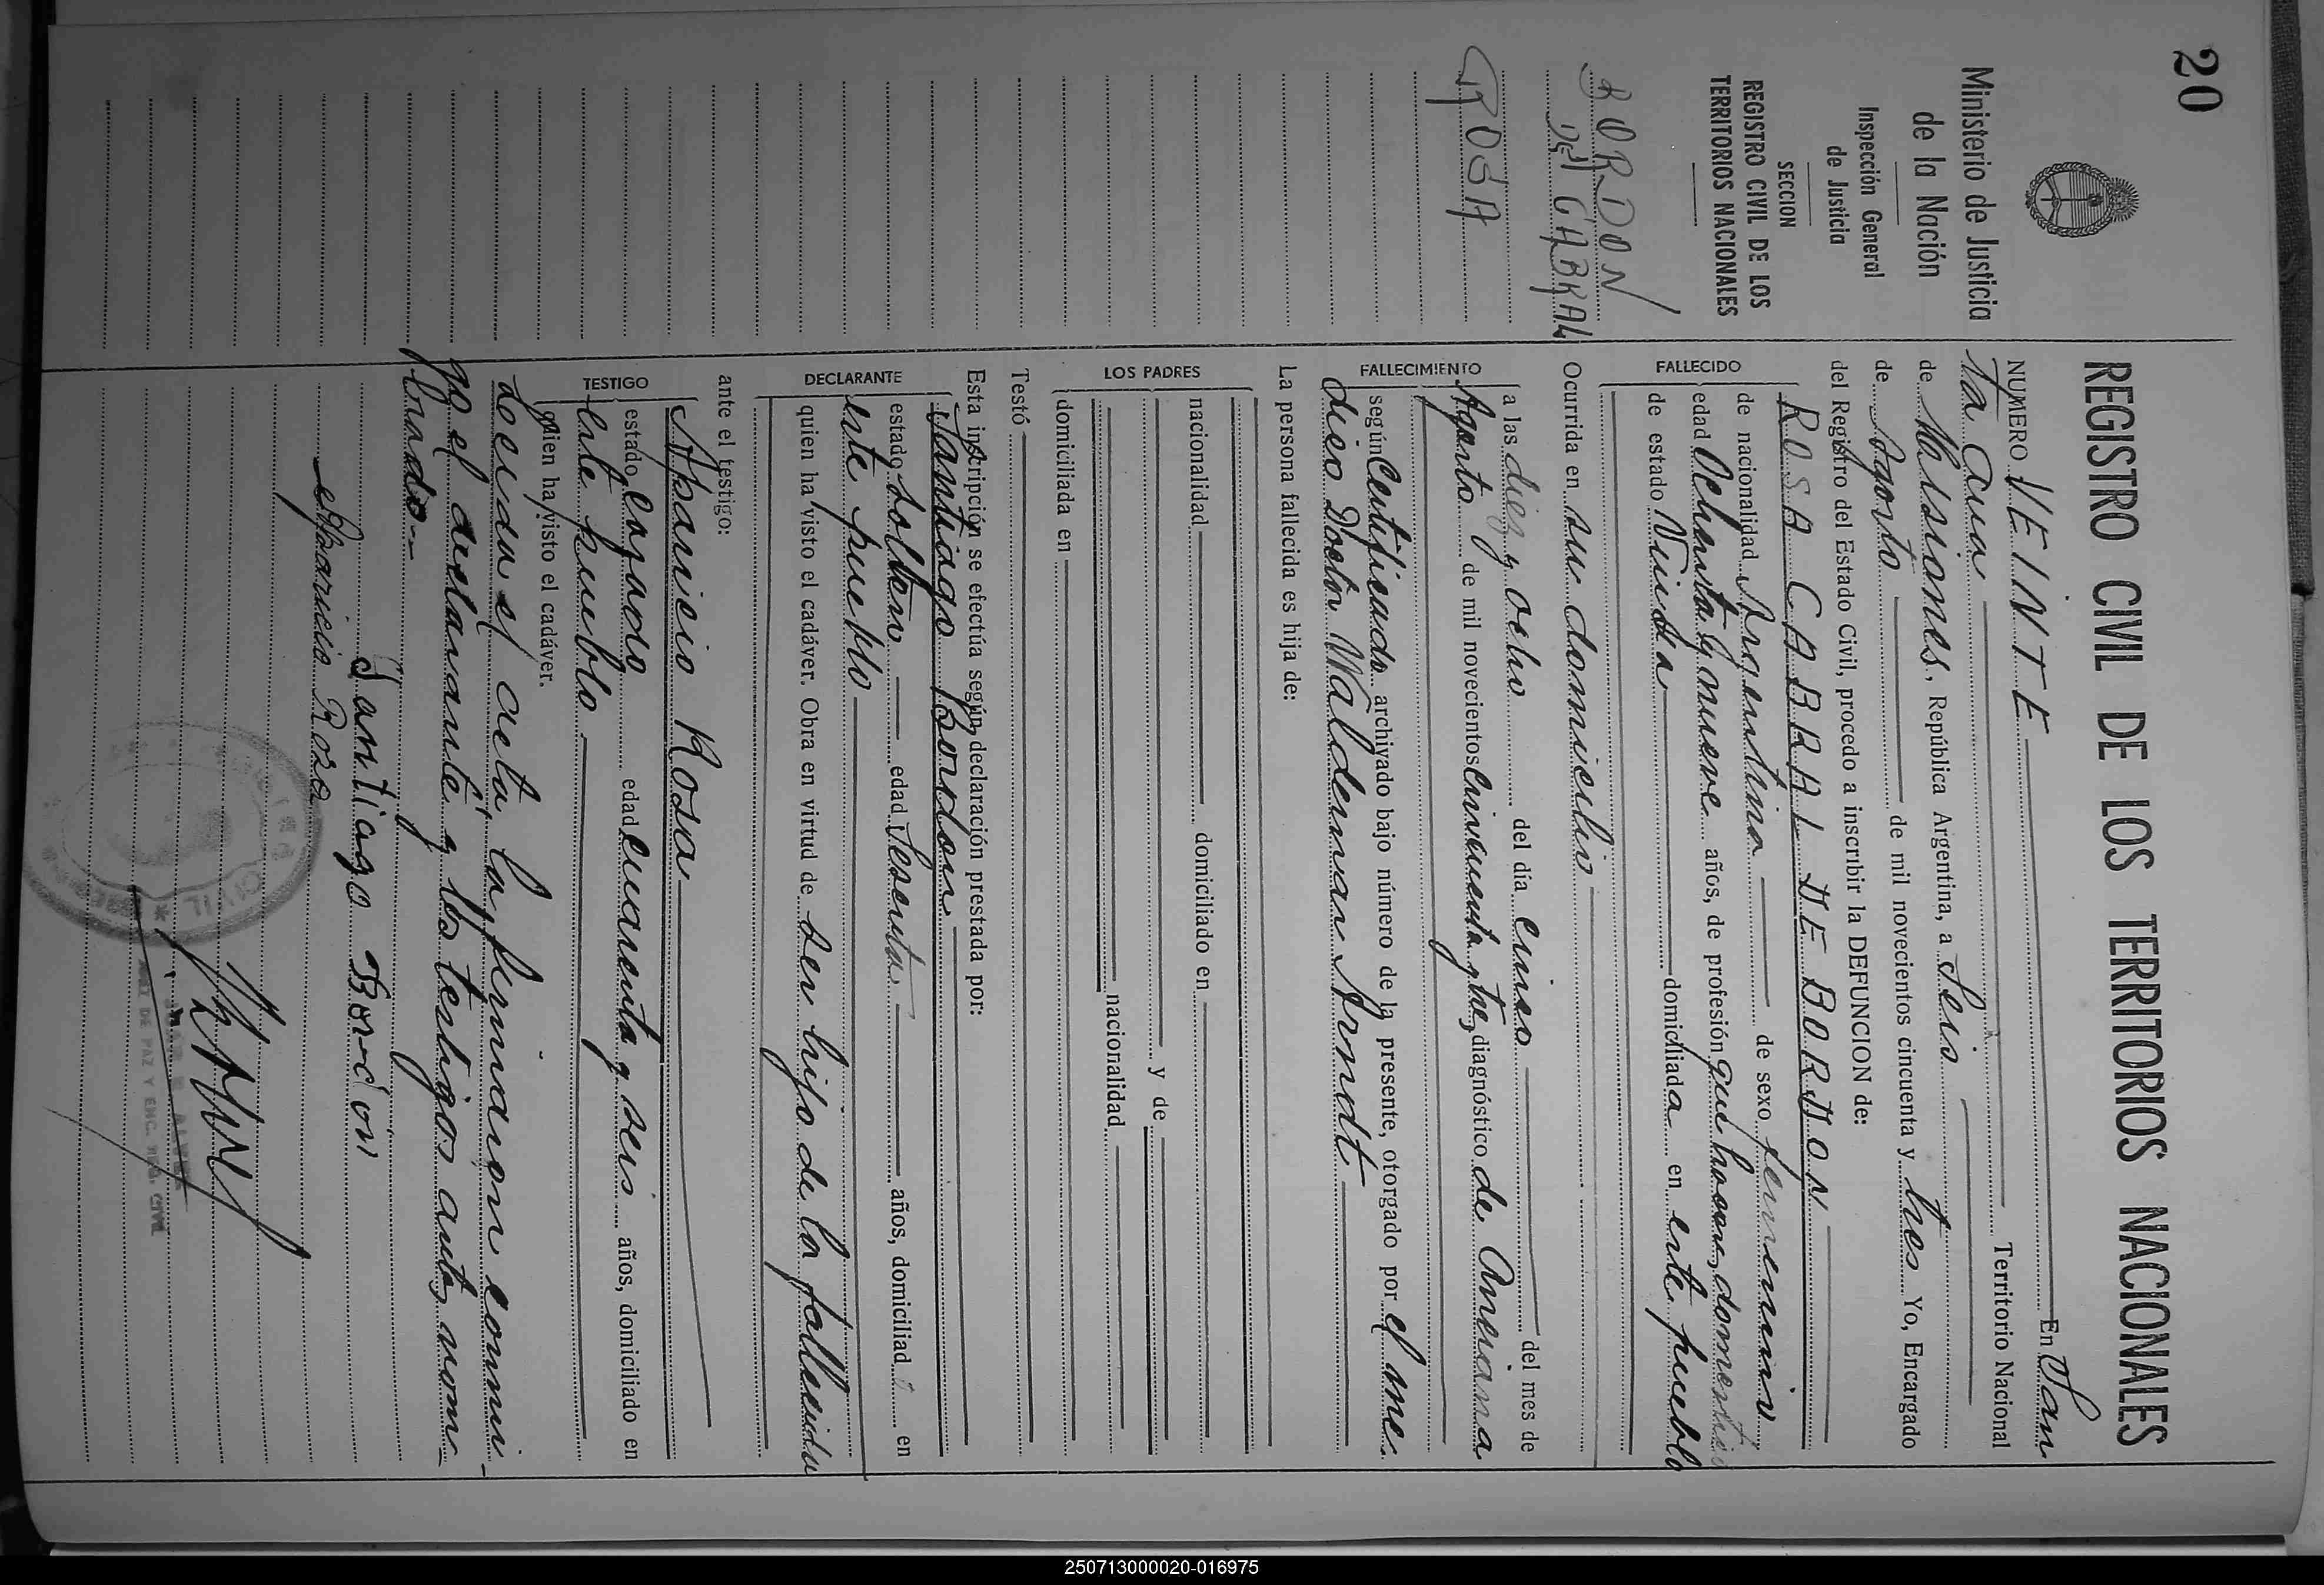 20
Ministerio de Justicia
de la Nación
Inspección General
de Justicia
SECCION
REGISTRO CIVIL DE LOS
TERRITORIOS NACIONALES
BORDON
DE CABRAL
ROSA
REGISTRO CIVIL DE LOS TERRITORIOS NACIONALES
NUMERO VEINTE En San
ta Ana Territorio Nacional
de Misiones, República Argentina, a Seis
de Agosto de mil novecientos cincuenta y tres Yo, Encargado
del Registro del Estado Civil, procedo a inscribir la DEFUNCION de:
FALLECIDO
ROSA CABRAL DE BORDON
de nacionalidad Argentina de sexo femenino
edad Ochenta y nueve años, de profesión domestico
de estado Viuda domiciliada en este pueblo
Ocurrida en su domicilio
FALLECIMIENTO
a las diez y ocho del día cinco del mes de
Agosto de mil novecientos cincuenta y tres diagnóstico de
según Certificado archivado bajo número de la presente, otorgado por el me
dico Doctor Waldemar Arndt
La persona fallecida es hija de:
LOS PADRES
nacionalidad domiciliado en
y de
nacionalidad
domiciliada en
Testó
Esta inscripción se efectúa según declaración prestada por:
DECLARANTE
Santiago Bordon
estado soltero edad Sesenta años, domiciliado en
este pueblo
quien ha visto el cadáver. Obra en virtud de ser hijo de la fallecida
ante el testigo:
TESTIGO
Aparicio Rosa
estado casado edad cuarenta y seis años, domiciliado en
este pueblo
quien ha visto el cadáver.
Leida el acta la firmaron conmi
go el declarante y los testigos antes nom
brado
Santiago Bordon
Aparicio Rosa
CIVIL
DE PAZ Y ENC. REG. CIVIL
250713000020-016975